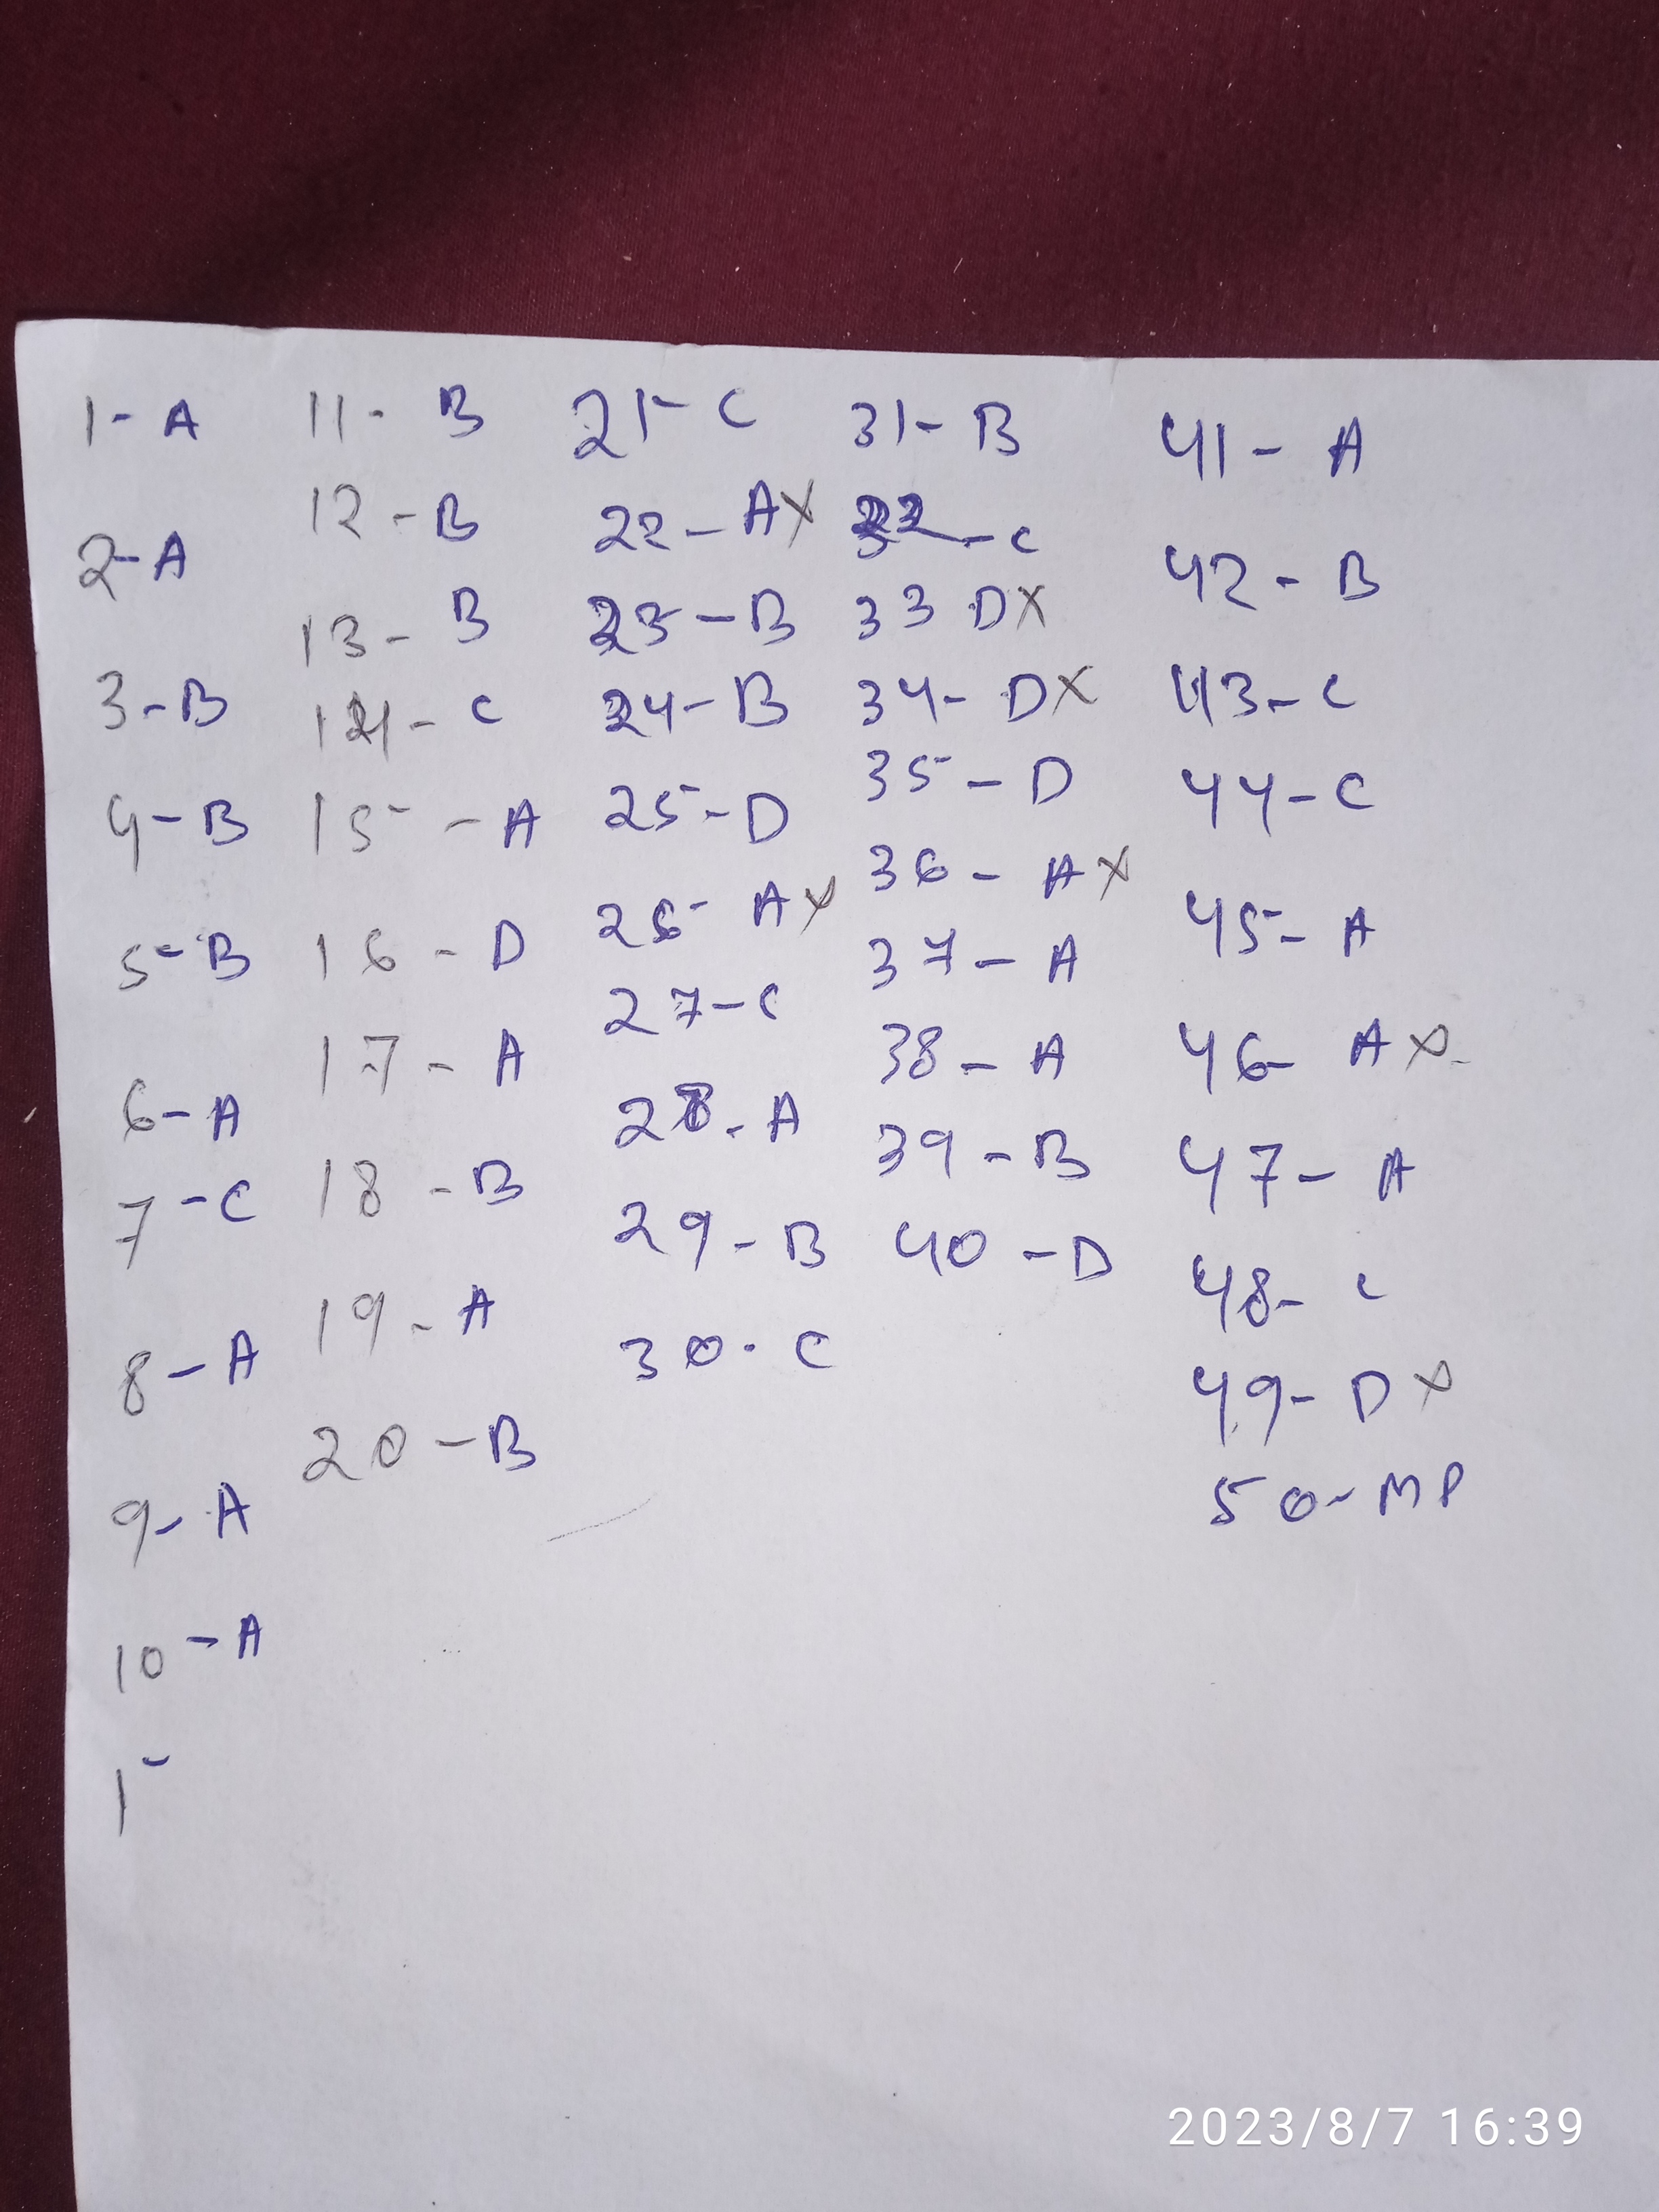 1- A
2- A
3- B
4- B
5- B
6- A
7 - C
8 - A
9- A
10 - A
1-
11- B
12 - B
13- B
14- C
15 - A
16 - D
17 - A
18 - B
19 - A
20 - B
21- C
22- A X
23 - B
24- B
25- D
26- A X
27-C
28- A
29- B
30. C
31- B
32 - C
33 D X
34- D X
35 - D
36 - A X
37 - A
38 - A
39 - B
40 - D
41 - A
42 - B
43- C
44- C
45- A
46- A X
47- A
48- C
49- D X
50- MP
2023/8/7 16:39